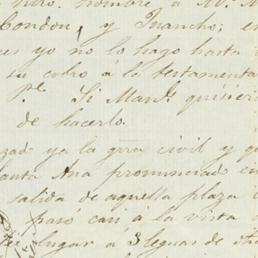 otro. nombre á
Condon, y Trancho; e
es yo no lo hago hasta
su cobro á la testamenta
p.r Si Man.l quisiera
de hacerlo.
zado ya la gu̅r̅a civil y q
anta Ana pronunciado en
salida de aquella plaza
pasó casi á la vista d
lugar a 3 leguas de